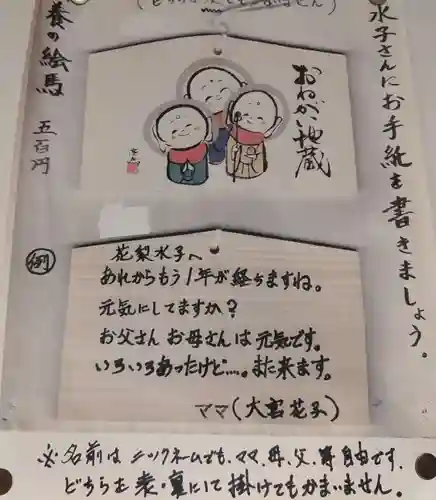 水子さんにお手紙を書きましょう。
養の絵馬 五百円
おねがい地蔵
例
花梨水子へ
あれからもう1年が経ちますね。
元気にしてますか?
お父さん お母さんは元気です。
いろいろあったけど…。また来ます。
ママ(大宮花子)
※名前は ニックネームでも、ママ、母、父、等自由です。
どちらを表・裏にて掛けてもかまいません。